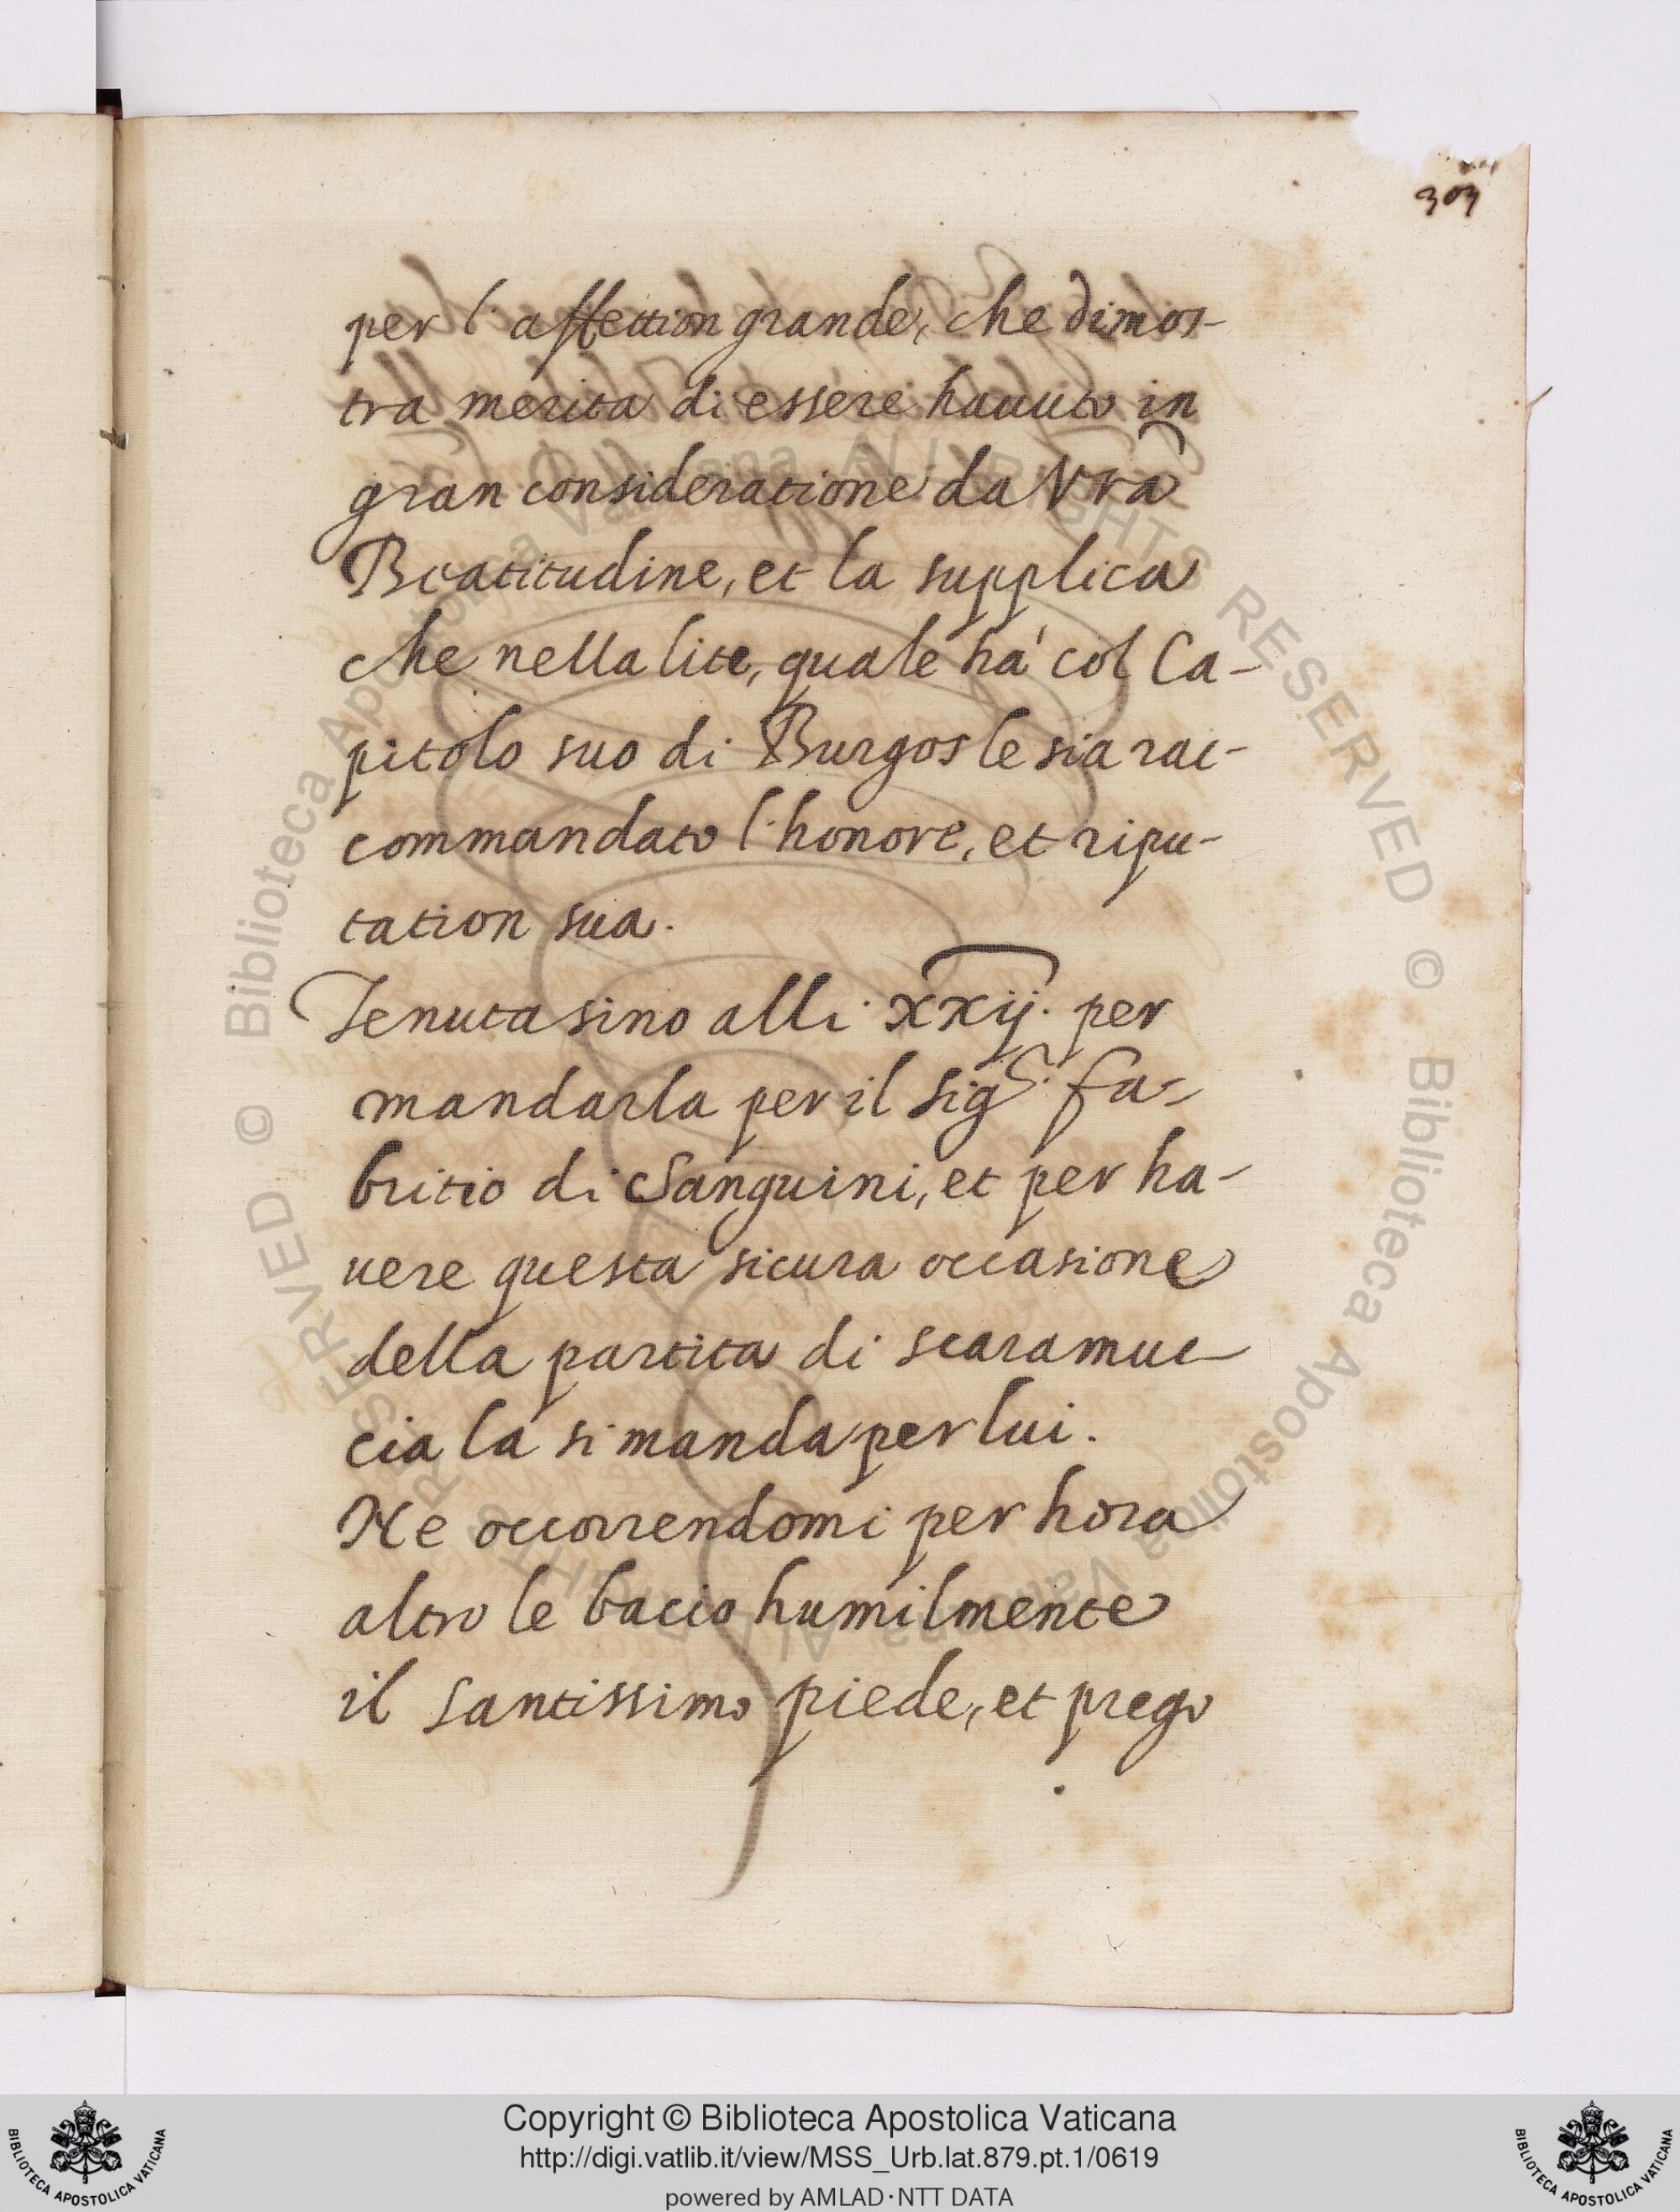 303
per l'affettion grande, che dimos-
tra merita di essere hauuto in
gran consideratione da Vrã
Beatitudine, et la supplica
che nella lite, quale hà col Ca-
pitolo suo di Burgos le sia rac-
commandato l'honore, et ripu-
tation sua.
Tenuta sino alli xxij. per
mandarla per il sigr. fa-
britio di Sanguini, et per ha-
uere questa sicura occasione
della partita di scaramuc-
cia la si manda per lui.
Ne occorrendomi per hora
altro le bacio humilmente
il santissimo piede, et prego
© Biblioteca Apostolica Vaticana ALL RIGHTS RESERVED © Biblioteca Apostolica Vaticana ALL RIGHTS RESERVED
Copyright © Biblioteca Apostolica Vaticana
http://digi.vatlib.it/view/MSS_Urb.lat.879.pt.1/0619
powered by AMLAD·NTT DATA
BIBLIOTECA APOSTOLICA VATICANA
BIBLIOTECA APOSTOLICA VATICANA